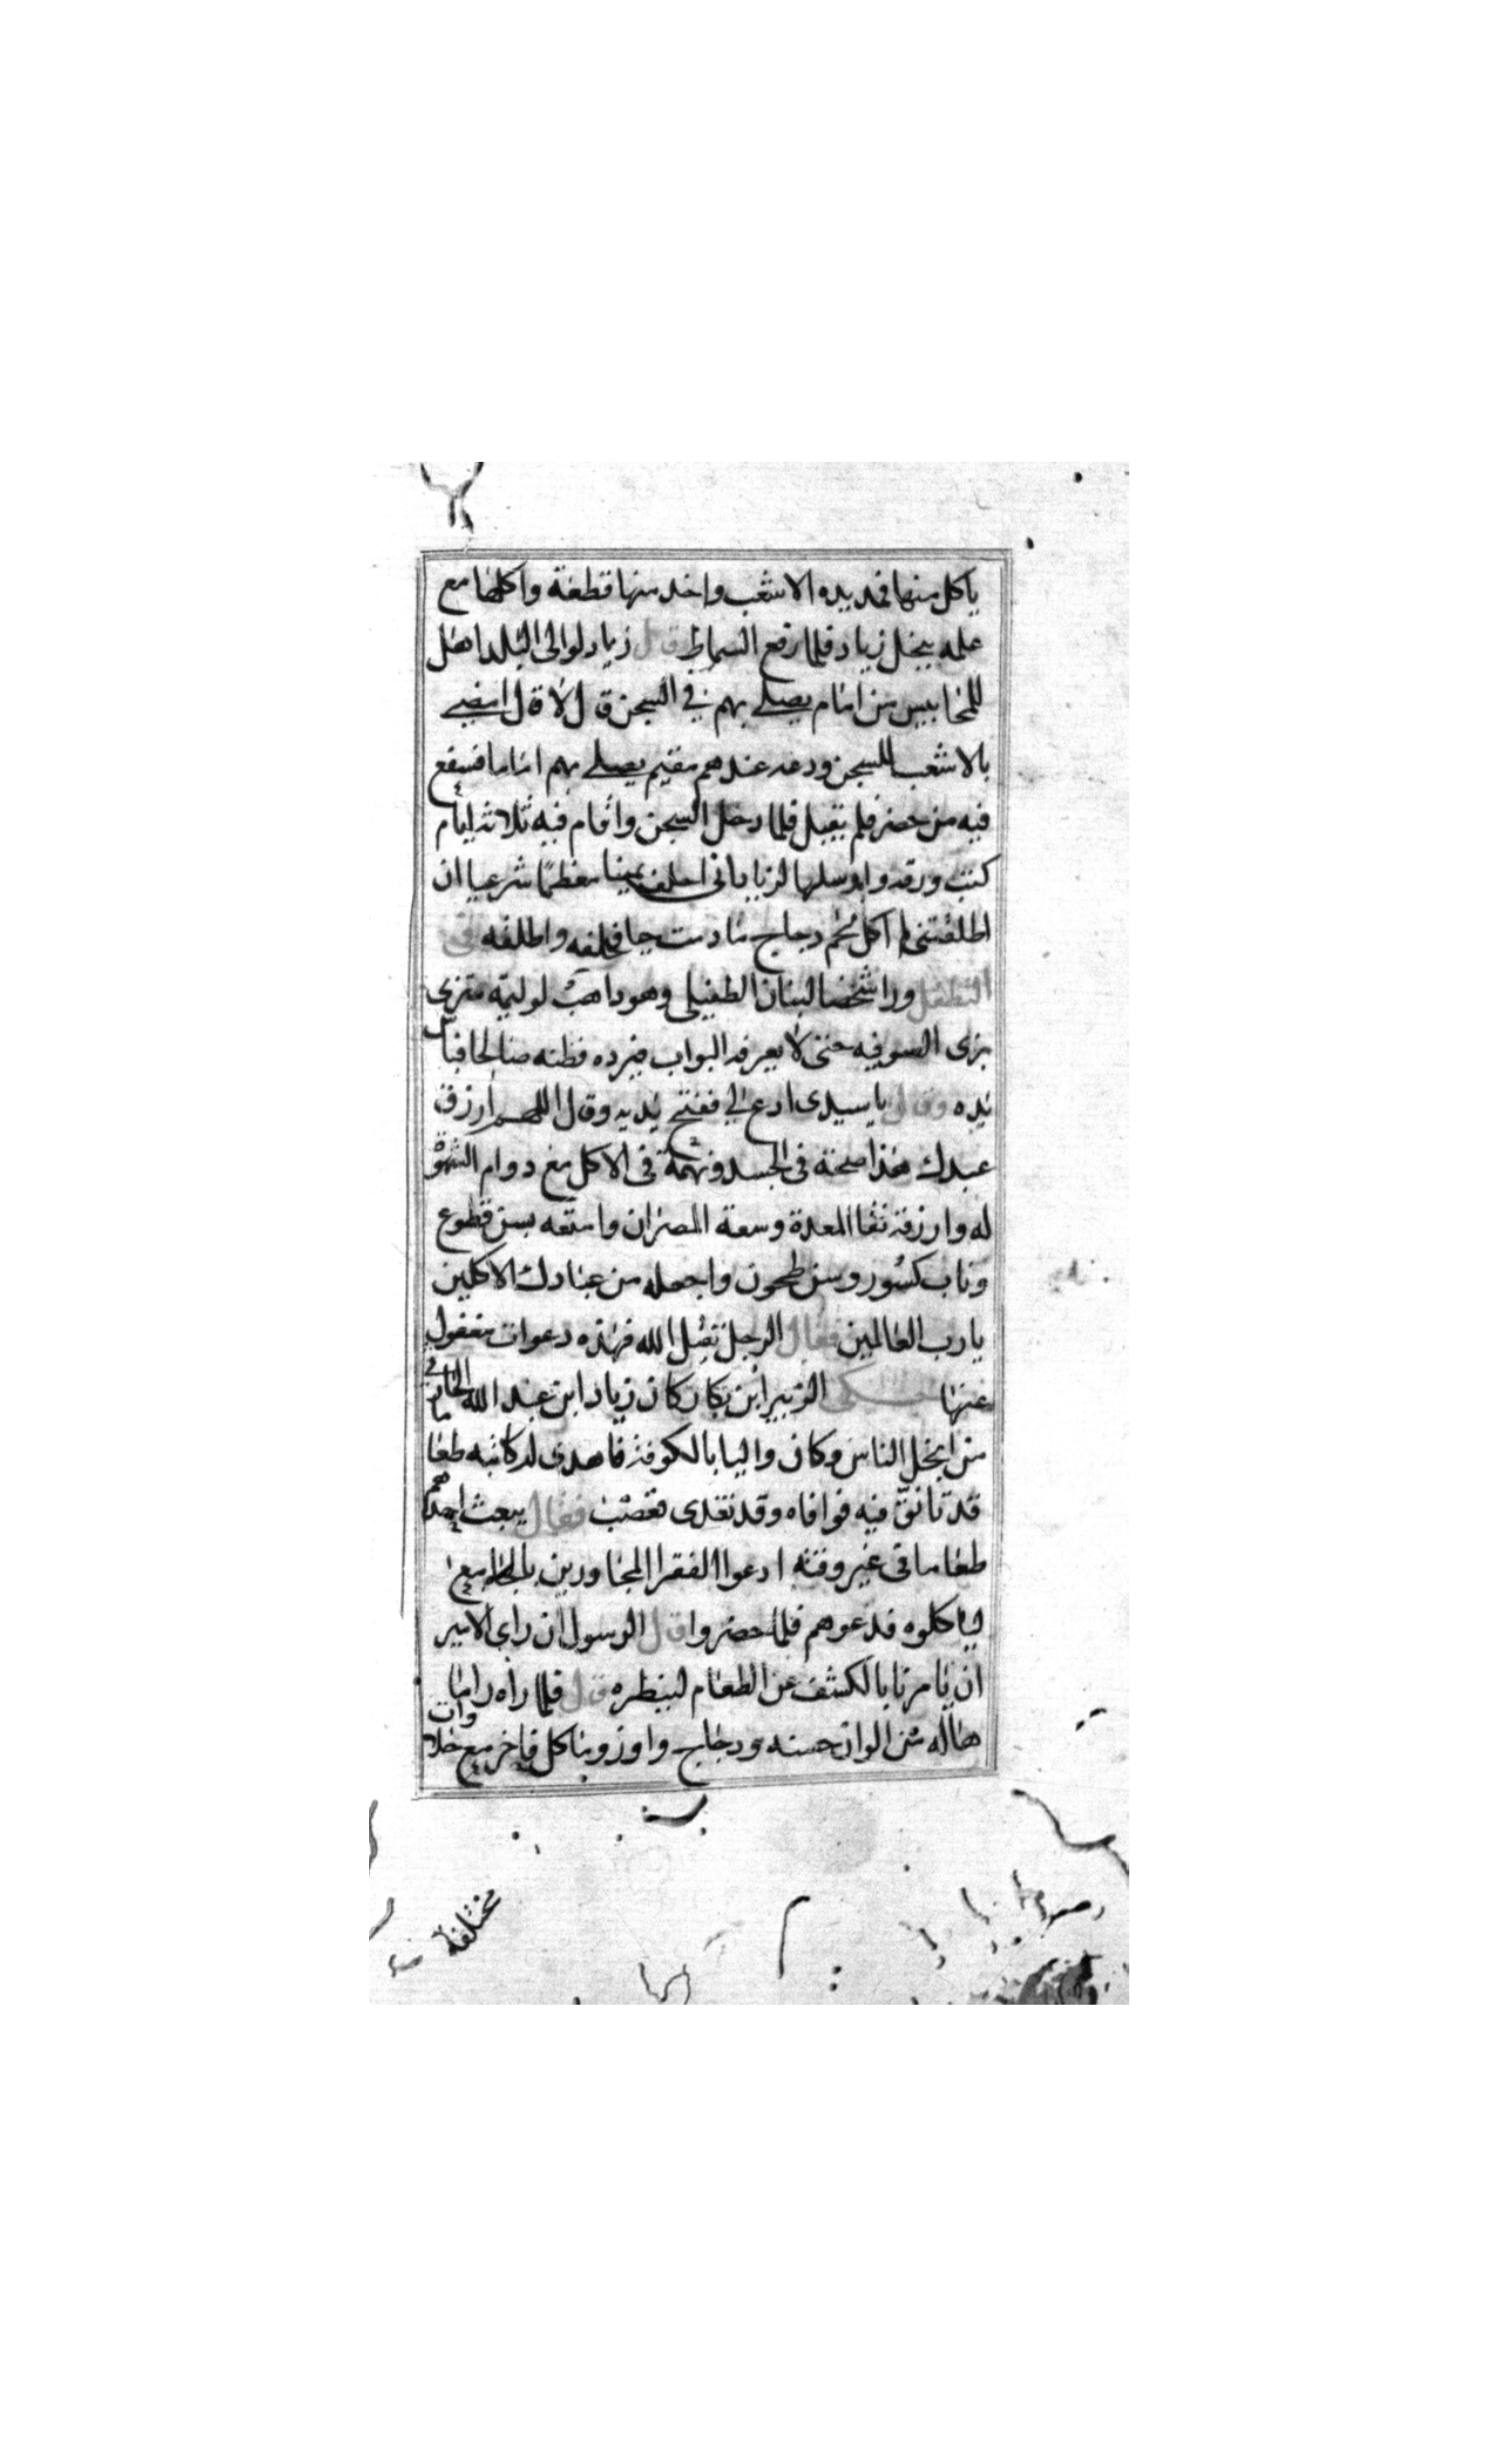 ياكل منها فمد يده الاشعب واخد منها قطعة واكلها مع
علمه ببخل زياد فلما رفع السماط قال زياد لوالى البلد اهل
للمحابيس من امام يصلي بهم في السجن قال لا قال امضي
بالاشعب للسجن ودعه عندهم مقيم يصلي بهم اماما فشفع
فيه من حضر فلم يقبل فلما دخل السجن واقام فيه ثلاثة ايام
كتب ورقه وارسلها لزياد انى احلف يمينا معظما شرعيا ان
اطلقتنى لم آكل لحم دجاج ما دمت حيا فحلفه واطلقه
التطفل وراشخصا لبنان الطفيلى وهو داهب لوليمة متزى
بزى الصوفيه حتى لا يعرفه البواب فيرده فظنه صالحا فباس
يده وقال يا سيدى ادع لي ففتح يديه وقال اللهم ارزق
عبدك هذا صحة فى الجسد ونهمة فى الاكل مع دوام الشهوة
له وارزقه نقا المعدة وسعة المصران وامتعه بسن قطوع
وناب كسور وسن طحون واجعله من عبادك الاكلين
يا رب العالمين فقال الرجل تقبل الله فهذه دعوات مغفول
عنها حكى الزبير ابن بكار كان زياد ابن عبد الله الحارثي
من ابخل الناس وكان واليا بالكوفة فاهدى له كاتبه طعاما
قد تانق فيه فوافاه وقد تغدى فغضب فقال يبعث احدكم
طعاما فى غير وقته ادعوا الفقرا المجاورين بالجامع
لياكلوه فدعوهم فلما حضروا قال الرسول ان راى الامير
ان يامرنا بالكشف عن الطعام لينظره قال فلما راه راى ما
هاله من الوان حسنه ودجاج واوز وماكل فاخر مع حلاوات
مختلفة